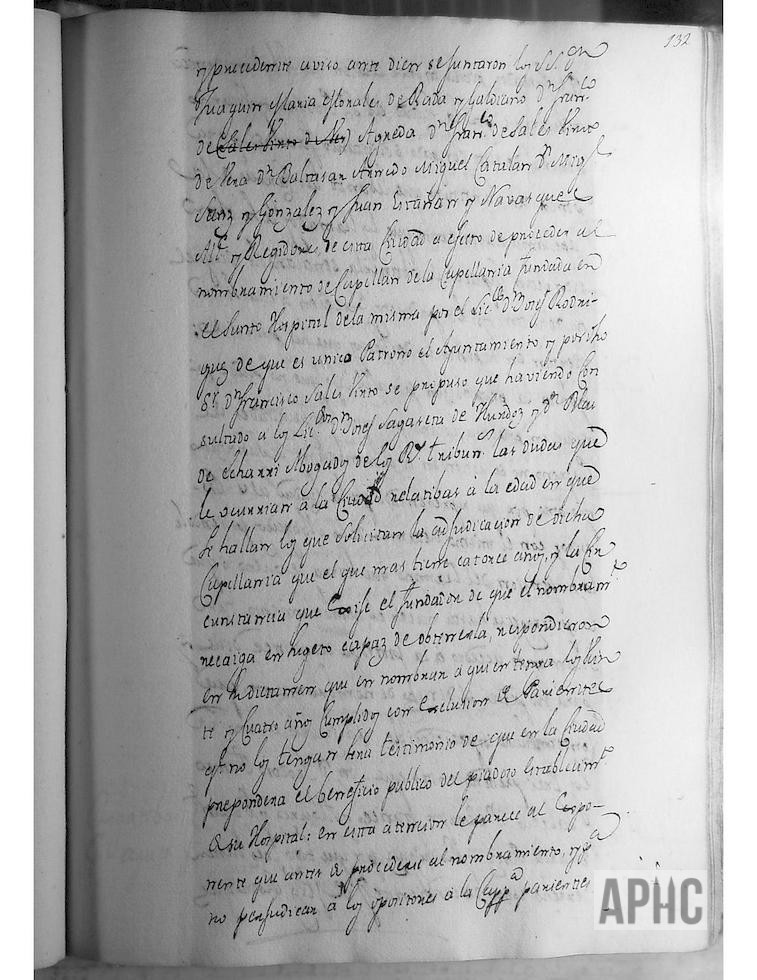 132
y precedente aviso ante diem se juntaron los SS. Dn
Juaquin Maria Monales de Rada y Galdiano Dn Franco
de Sales Pinto de Agreda Dn Franco de Sales Pinto
de Vera Dn Baltasar Miguel Catalan Dn Migl
Sanz y Gonzalez y Juan Escañan y Navasques
Alc. y Regidores de esta Ciudad a efecto de proceder al
nombramiento de Capellan de la Capellania fundada en
el Santo Hospital de la misma por el Licdo Dn Rodri-
guez de que es unico Patrono el Ayuntamiento y por dho
Sr Dn Francisco Sales Pinto se propuso que haviendo Con
sultado a los Licdos Dn Sagaseta de y Dn Blas
de Echarri Abogados de los Rs tribun.s las dudas que
le ocurrian a la Ciudad relatibas à la edad en que
se hallan los que solicitan la adjudicacion de dicha
Capellania que el que mas tiene catorce años, y la Cir
cunstancia que Exije el fundador de que el nombramto
recaiga en sugeto capaz de obtenerla, respondieron
en su dictamen que se nombrar a quien tenga los Vein
te y Cuatro años Cumplidos con Exclusion de Parientes
q.e no los tengan tena testimonio de que en la Ciudad
prepondera el beneficio publico del piadoso Establecimto
de su Hospital: en esta atencion le parece al Expo-
nente que antes de procederse al nombramiento, y pa
no perjudicar à los opositores à la Cappa parientes
APHC